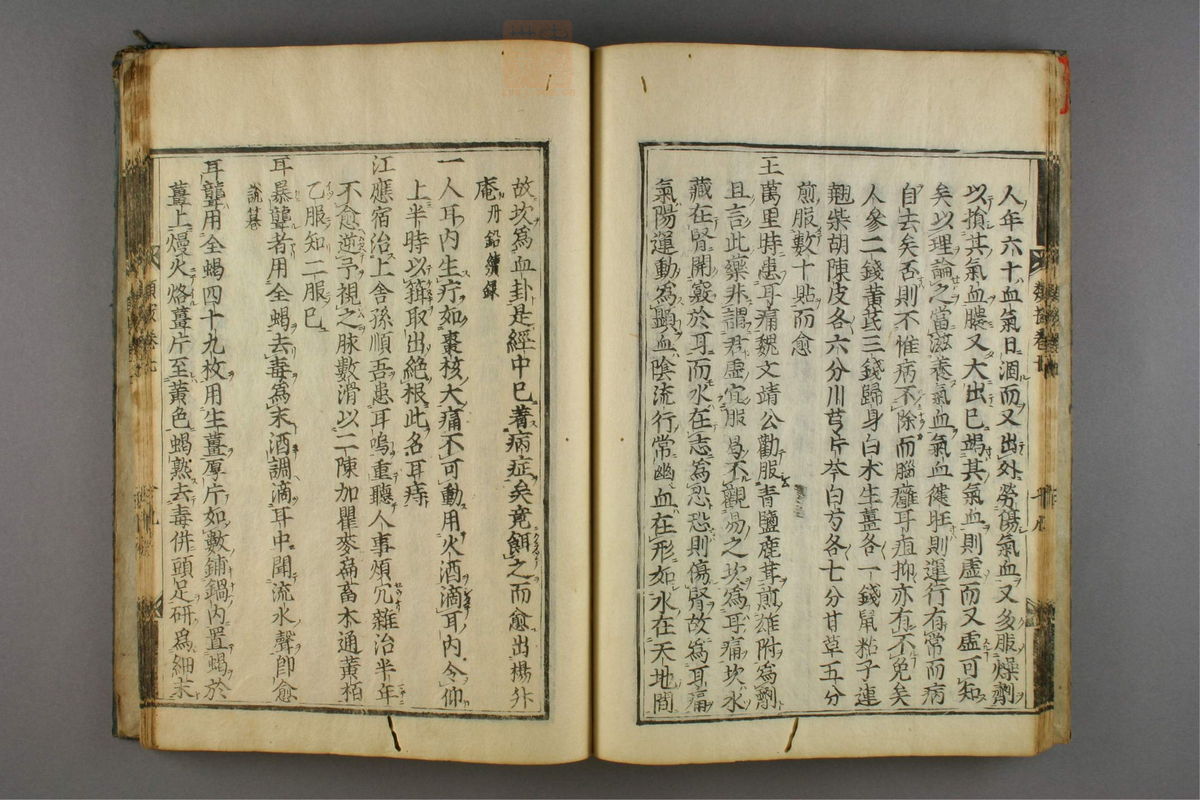 人年六十血氣日涸而又出外勞傷氣血又多服燥劑
以損其氣血膿又大出已竭其氣血則虛而又虛可知
矣以理論之當滋養氣血氣血健旺則運行有常而病
自去矣否則不惟病不除而腦癰耳疽抑亦有不免矣
人參二錢黃芪三錢歸身白朮生薑各一錢鼠粘子連
翹柴胡陳皮各六分川芎片芩白芍各七分甘草五分
煎服數十貼而愈
王萬里時患耳痛魏文靖公勸服青鹽鹿茸煎雄附爲劑
且言此藥非謂君虛宜服曷不觀易之坎爲耳痛坎水
藏在腎開竅於耳而水在志爲恐恐則傷腎故爲耳痛
氣陽運動爲顯血陰流行常幽血在形如水在天地間
故坎爲血卦是經中已著病症矣竟餌之而愈出楊升
庵丹鉛續録
一人耳内生疔如棗核大痛不可動用火酒滴耳内令仰
上半時以箝取出絶根此名耳痔
江應宿治上舍孫順吾患耳鳴重聽人事煩冗雜治半年
不愈逆予視之脉數滑以二陳加瞿麥萹畜木通黄栢
乙服知二服已
耳暴聾者用全蝎去毒爲末酒調滴耳中聞流水聲卽愈
説纂
耳聾用全蝎四十九枚用生薑厚片如數鋪鍋内置蝎於
薑上熳火烙薑片至黄色蝎熟去毒併頭足研爲細末